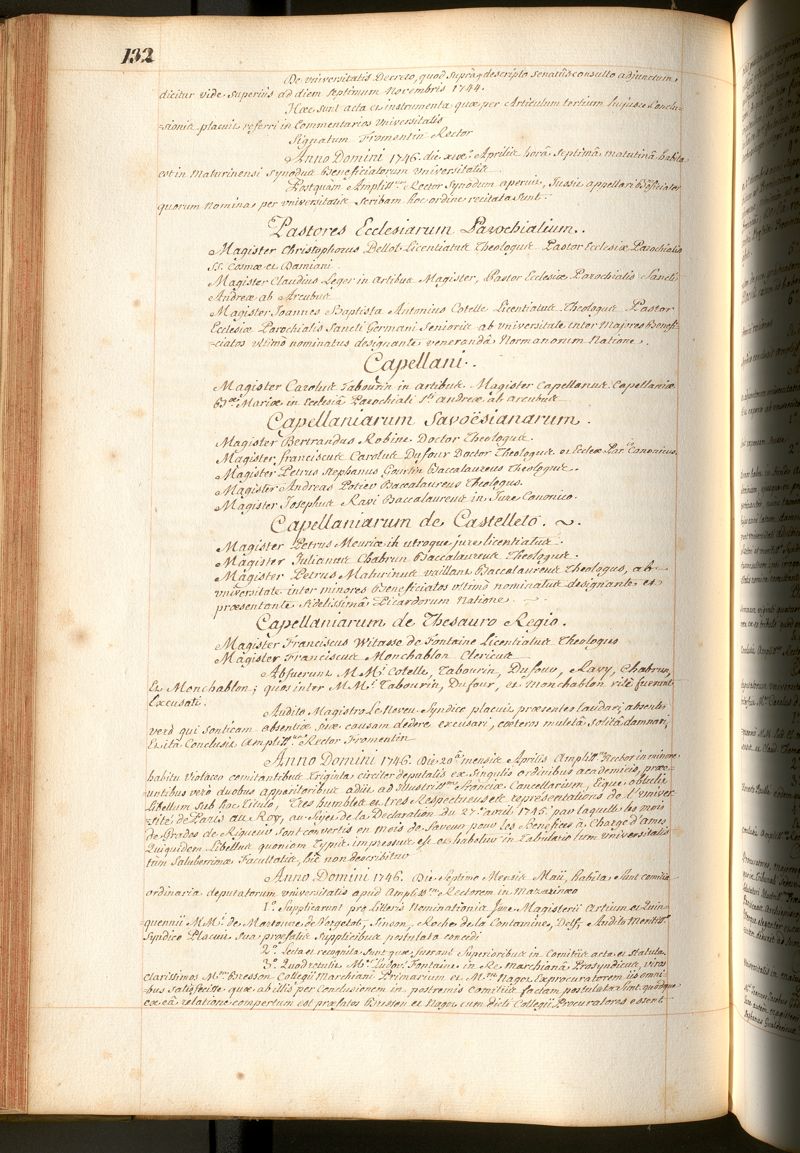 132
De universitatis Decreto, quod supra descripto senatûsconsulto adjunctum
dicitur vide superius ad diem septimum Novembris 1744.
Hæc sunt acta et instrumenta quæ per Articulum tertium hujusce Conclu-
-sionis placuit referri in Commentarios Universitatis
Signatum Fromentin Rector
Anno Domini 1746. die Aprilis horâ septimâ matutinâ habita
est in Maturinensi Synodus Beneficiatorum Universitatis
Postquam Ampliss. Rector Synodum aperuit, Jussit appellari Beneficiatos
quorum Nomina per universitatis scribam hoc ordine recitata sunt.
Pastores Ecclesiarum Parochialium..
Magister Christophorus Bellot Licentiatus Theologus Pastor Ecclesiæ Parochialis
S.S. Cosmæ et Damiani
Magister Claudius Leger in artibus Magister, Pastor Ecclesiæ Parochialis Sancti
Andreæ ab Arcubus
Magister Joannes Baptista Antonius Cotelle Licentiatus Theologus Pastor
Ecclesiæ Parochialis Sancti Germani Senioris ab universitate inter Majores Benefi-
-ciatos ultimò nominatus designante venerandâ Normanorum Natione.
Capellani..
Magister Carolus Tabourin in artibus Magister Capellanus Capellaniæ
B. Mariæ in Ecclesiâ Parochiali Sti Andreæ ab arcubus
Capellaniarum Savoësianarum.
Magister Bertrandus Robine Doctor Theologus.
Magister franciscus Carolus Dufour Doctor Theologus et Eccleæ Par. Canonicus.
Magister Petrus Stephanus Gourlin Baccalaureus Theologus.
Magister Andreas Potier Baccalaureus Theologus.
Magister Josephus Ravi Baccalaureus in Jure Canonico.
Capellaniarum de Castelleto. ~.
Magister Petrus Meurice in utroque jure licentiatus.
Magister Julianus Chabrun Baccalaureus Theologus.
Magister Petrus Maturinus vaillant Baccalaureus Theologus, ab
universitate inter minores Beneficiatos ultimò nominatus designante et
præsentante fidelissimâ Picardorum Natione.
Capellaniarum de Thesauro Regio.
Magister Franciscus Witasse de Fontaine Licentiatus Theologus
Magister Franciscus Monchablon Clericus
Abfuerunt M M. Cotelle, Tabourin, Dufour, Ravy, Chabrun,
Et Monchablon; quos inter M M. Tabourin, Dufour, et Monchablon ritè fuerunt
Excusati.
Audito Magistro Le Neveu Syndico placuit præsentes laudari, absentes
verò qui sonticam absentiæ suæ causam dedere excusari, cæteros muletâ solitâ damnari;
Et ita Conclusit Ampliss. Rector Fromentin
Anno Domini 1746. Die 20â mensis Aprilis Ampliss. Rector in minore
habitu violaceo comitantibus triginta circiter deputatis ex singulis ordinibus academicis, præe-
untibus verò duobus apparitoribus adiit ad Illustriss. Franciæ Cancellarium, Eique obtulit
Libellum sub hoc Titulo, Tres humbles et tres Respectueuses représentations de l'univer-
-sité de Paris au Roy, au Sujet de la Declaration du 27. avril 1745. par laquelle les mois
de Grades de Rigueur sont convertis en mois de faveur pour les Benefices à Charge d'ames
Qui quidem Libellus quoniam Typis impressus est et habetur in Tabulario tum universitatis
tum saluberrimæ Facultatis, hic non describitur
Anno Domini 1746. Die Septimo Mensis Maii, habita sunt comitia
ordinaria deputatorum universitatis apud Ampliss. Rectorem in Mazarinæo
1º. Supplicarunt pro litteris Nominationis Jure Magisterii Artium et Quin-
quennii M M. de Martonne de Vergetot, Sinson, Roche de la Contamine, Delf; Audito Meritiss.
Syndico Placuit sua præfatis supplicibus postulata concedi
2º. Lecta et recognita sunt quæ fuerant Superioribus in Comitiis acta et statuta.
3º. Quod retulit M. Ludov. Fontaine in Re Marchianâ Prosyndicus, viros
clarissimos M. Bresson Collegii Marchiani Primarium et M. Nagot Exprocuratorem iis omni-
bus satisfecisse quæ ab illis per Conclusionem in postremis Comitiis factam postulata sunt quodque
ex eâ relatione compertum est præfatos Bresson et Nagot cum dicti Collegii Procuratores essent